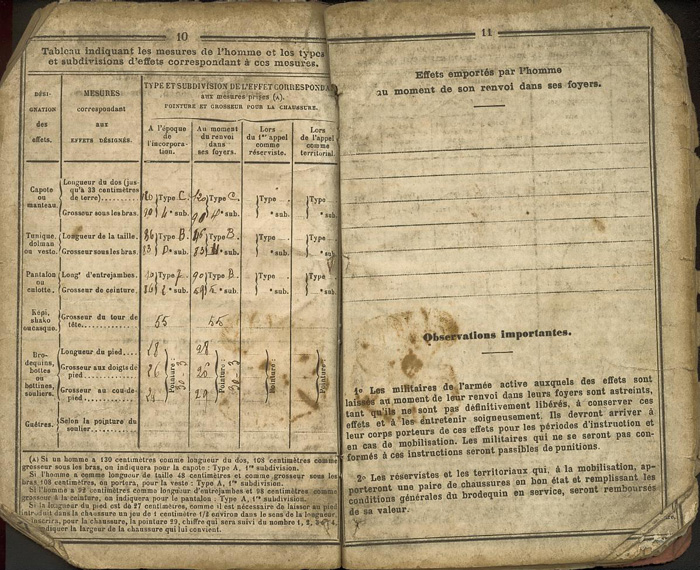 10
Tableau indiquant les mesures de l'homme et les types
et subdivisions d'effets correspondant à ces mesures.
DÉSI-
GNATION
des
effets.
MESURES
correspondant
aux
EFFETS DÉSIGNÉS.
TYPE ET SUBDIVISION DE L'EFFET CORRESPONDA
aux mesures prises (A).
POINTURE ET GROSSEUR POUR LA CHAUSSURE.
A l'époque
de
l'incorpora-
tion.
Au moment
du renvoi
dans
ses foyers.
Lors
du 1er appel
comme
réserviste.
Lors
de l'appel
comme
territorial.
Capote
ou
manteau.
Longueur du dos (jus-
qu'à 33 centimètres
de terre)
Type C
Type C
Type
Type
Grosseur sous les bras.
90 4e sub.
90 4e sub.
e sub.
e sub.
Tunique,
dolman
ou veste.
Longueur de la taille.
Type B.
Type B.
Type
Type
Grosseur sous les bras.
e sub.
e sub.
e sub.
e sub.
Pantalon
ou
culotte.
Longr d'entrejambes.
Type
90 Type B.
Type
Type
Grosseur de ceinture.
e sub.
e sub.
e sub.
e sub.
Képi,
shako
ou casque.
Grosseur du tour de
tête
55
55
Bro-
dequins,
bottes
ou
bottines,
souliers.
Longueur du pied
28
28
Grosseur aux doigts de
pied
26
26
Grosseur au cou-de-
pied
29
Pointure :
30 - 3
Pointure :
30 - 3
Pointure :
Pointure :
Guêtres.
Selon la pointure du
soulier
(A) Si un homme a 130 centimètres comme longueur du dos, 108 centimètres comme
grosseur sous les bras, on indiquera pour la capote : Type A, 1re subdivision.
Si l'homme a comme longueur de taille 48 centimètres et comme grosseur sous les
bras 108 centimètres, on portera, pour la veste : Type A, 1re subdivision.
Si l'homme a 92 centimètres comme longueur d'entrejambes et 98 centimètres comme
grosseur à la ceinture, on indiquera pour le pantalon : Type A, 1re subdivision.
Si la longueur du pied est de 27 centimètres, comme il est nécessaire de laisser au pied
dans la chaussure un jeu de 1 centimètre 1/2 environ dans le sens de la longueur,
inscrira, pour la chaussure, la pointure 29, chiffre qui sera suivi du nombre 1, 2, 3
indiquer la largeur de la chaussure qui lui convient.
11
Effets emportés par l'homme
au moment de son renvoi dans ses foyers.
Observations importantes.
1o Les militaires de l'armée active auxquels des effets sont
laissés au moment de leur renvoi dans leurs foyers sont astreints,
tant qu'ils ne sont pas définitivement libérés, à conserver ces
effets et à les entretenir soigneusement. Ils devront arriver à
leur corps porteurs de ces effets pour les périodes d'instruction et
en cas de mobilisation. Les militaires qui ne se seront pas con-
formés à ces instructions seront passibles de punitions.
2o Les réservistes et les territoriaux qui, à la mobilisation, ap-
porteront une paire de chaussures en bon état et remplissant les
conditions générales du brodequin en service, seront remboursés
de sa valeur.